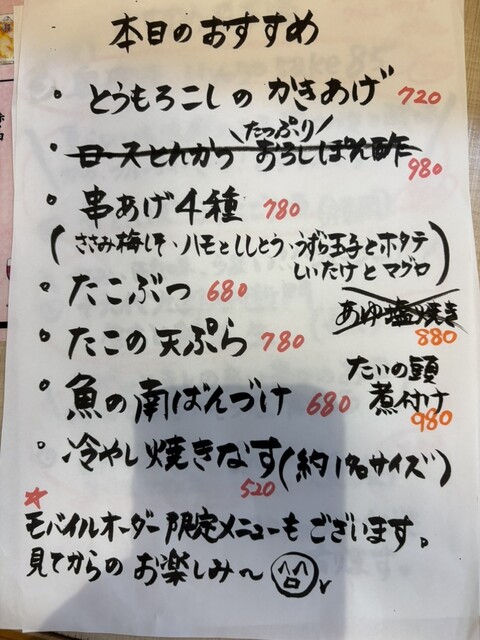 本日のおすすめ
・とうもろこしの かきあげ 720
\たっぷり/
・ロースとんかつ おろしぽん酢 980
・串あげ4種 780
(ささみ梅しそ・ハモとししとう・うずら玉子とホタテ
しいたけとマグロ)
・たこぶつ 680
あゆ塩焼き
880
・たこの天ぷら 780
たいの頭
煮付け
980
・魚の南ばんづけ 680
・冷やし焼きなす(約1名サイズ)
520
☆
モバイルオーダー限定メニューもございます。
見てからの お楽しみ〜